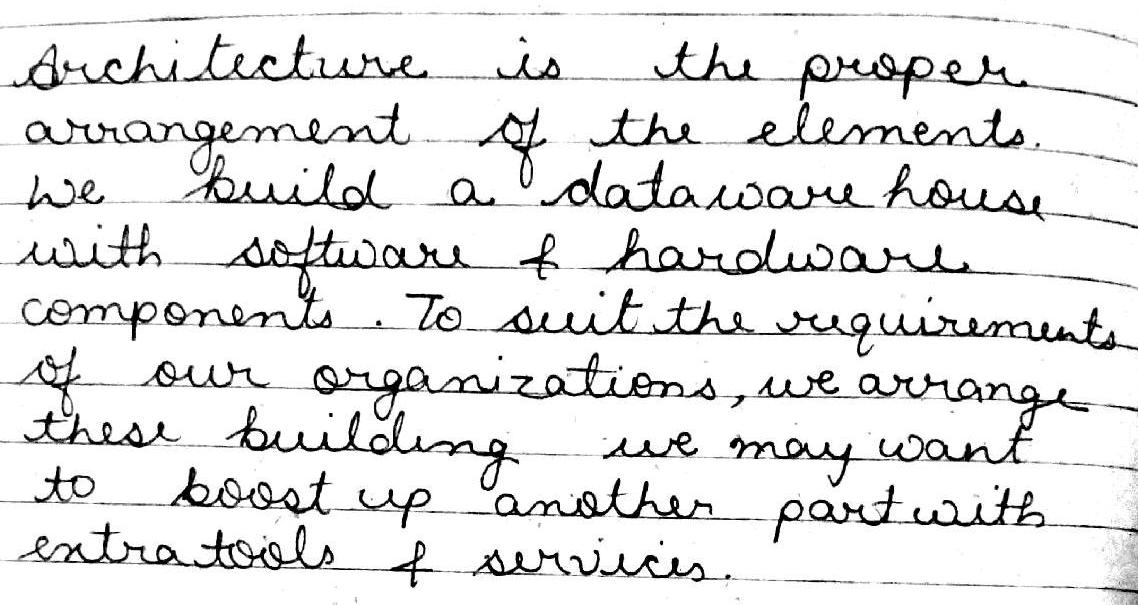 Architecture is the proper
arrangement of the elements.
We build a dataware house
with software & hardware
components. To suit the requirements
of our organizations, we arrange
these building we may want
to boost up another part with
extra tools & services.